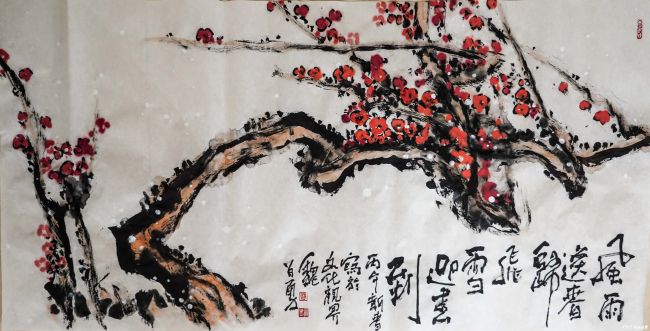 風雨
送春
歸
飛
雪
迎春
到
丙午新春
寫於
文化視界
魏